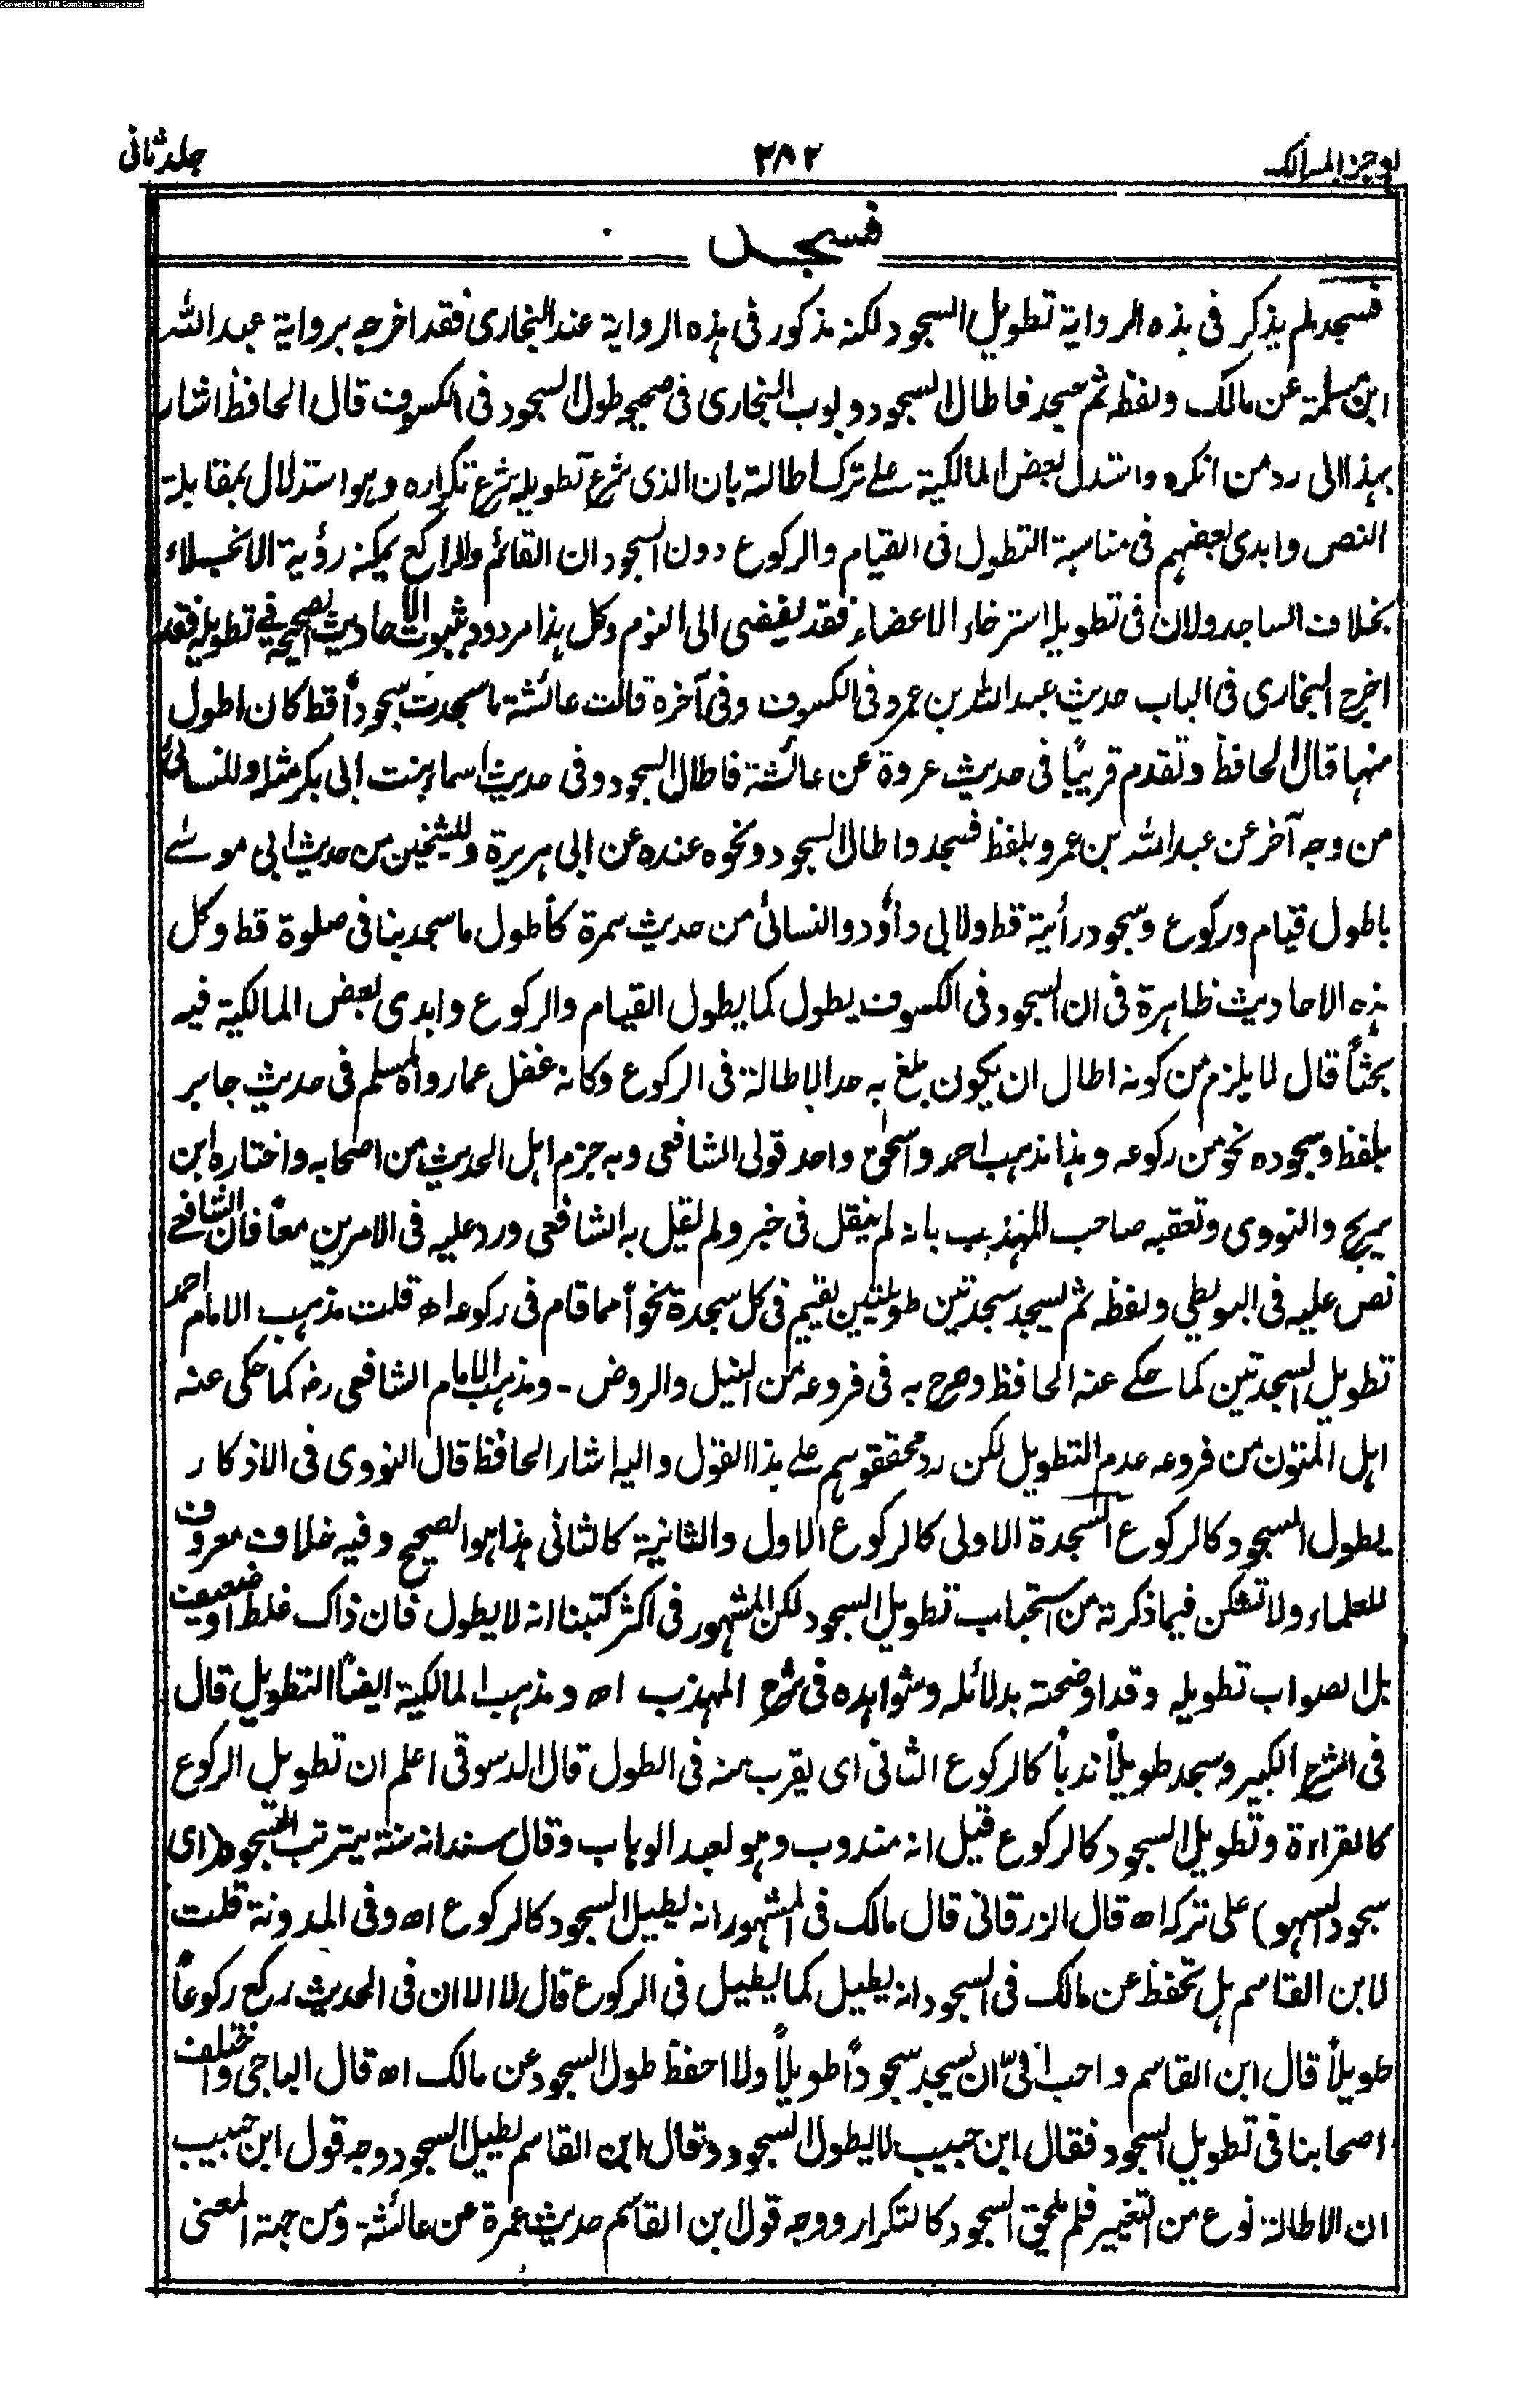 Converted by Tiff Combine - unregistered
اوجز المسالك
٢٨٢
جلد ثانی
فسجد
فسجد لم يذكر فى هذه الرواية تطويل السجود لكنه مذكور فى هذه الرواية عند البخارى فقد اخرجه برواية عبد الله
ابن مسلمة عن مالك ولفظه ثم سجد فاطال السجود وبوب البخارى فى صحيحه طول السجود فى الكسوف قال الحافظ اشار
بهذا الى رد من انكره واستدل بعض المالكية على ترك اطالته بان الذى شرع تطويله شرع تكراره وهو استدلال بمقابلة
النص وابدى بعضهم فى مناسبة التطول فى القيام والركوع دون السجود ان القائم والراكع يمكنه رؤية الانجلاء
بخلاف الساجد ولان فى تطويله استرخاء الاعضاء فقد يفضى الى النوم وكل هذا مردود بثبوت الاحاديث الصحيحة فى تطويله فقد
اخرج البخارى فى الباب حديث عبد الله بن عمرو فى الكسوف وفى آخره قالت عائشة ما سجدت سجوداً قط كان اطول
منها قال الحافظ وتقدم قريبًا فى حديث عروة عن عائشة فاطال السجود وفى حديث اسماء بنت ابى بكر مثله وللنسائى
من وجه آخر عن عبد الله بن عمرو بلفظ فسجد واطال السجود ونحوه عنده عن ابى هريرة وللشيخين من حديث ابى موسى
باطول قيام وركوع وسجود رأيته قط ولابى داؤد والنسائى من حديث سمرة كأطول ما سجد بنا فى صلوة قط وكل
هذه الاحاديث ظاهرة فى ان السجود فى الكسوف يطول كما يطول القيام والركوع وابدى بعض المالكية فيه
بحثاً قال لا يلزم من كونه اطال ان يكون بلغ به حد الاطالة فى الركوع وكانه غفل عما رواه مسلم فى حديث جابر
بلفظ وسجوده نحو من ركوعه وهذا مذهب احمد واسحٰق واحد قولى الشافعى وبه جزم اهل الحديث من اصحابه واختاره ابن
سريج والنووى وتعقبه صاحب المهذب بانه لم ينقل فى خبر ولم يقل به الشافعى ورد عليه فى الامرين معاً فان الشافعى
نص عليه فى البويطي ولفظه ثم يسجد سجدتين طويلتين يقيم فى كل سجدة نحواً مما قام فى ركوعه اه قلت مذهب الامام احمد
تطويل السجدتين كما حكى عنه الحافظ وصرح به فى فروعه من النيل والروض - ومذهب الامام الشافعى رض كما حكى عنه
اهل المتون من فروعه عدم التطويل لكن رد محققوهم على هذا القول واليه اشار الحافظ قال النووى فى الاذكار
يطول السجود كالركوع السجدة الاولى كالركوع الاول والثانية كالثانى هذا هو الصحيح وفيه خلاف معروف
للعلماء ولا تشكن فيما ذكرته من استحباب تطويل السجود لكن المشهور فى اكثر كتبنا انه لا يطول فان ذاك غلط او ضعيف
بل الصواب تطويله وقد اوضحته بدلائله وشواهده فى شرح المهذب اه ومذهب المالكية ايضًا التطويل قال
فى الشرح الكبير وسجد طويلاً ندباً كالركوع الثانى اى يقرب منه فى الطول قال الدسوقى اعلم ان تطويل الركوع
كالقراءة وتطويل السجود كالركوع قيل انه مندوب وهو لعبد الوهاب وقال سند انه سنة يترتب السجود (اى
سجود السهو) على تركه اه قال الزرقانى قال مالك فى المشهور انه يطيل السجود كالركوع اه وفى المدونة قلت
لابن القاسم هل تحفظ عن مالك فى السجود انه يطيل كما يطيل فى الركوع قال لا الا ان فى الحديث ركع ركوعاً
طويلاً قال ابن القاسم واحب الىّ ان يسجد سجوداً طويلاً ولا احفظ طول السجود عن مالك اه قال الباجى واختلف
اصحابنا فى تطويل السجود فقال ابن حبيب لا يطول السجود وقال ابن القاسم يطيل السجود وجه قول ابن حبيب
ان الاطالة نوع من التغيير فلم يلحق السجود كالتكرار ووجه قول بن القاسم حديث عمرة عن عائشة ومن جهة المعنى